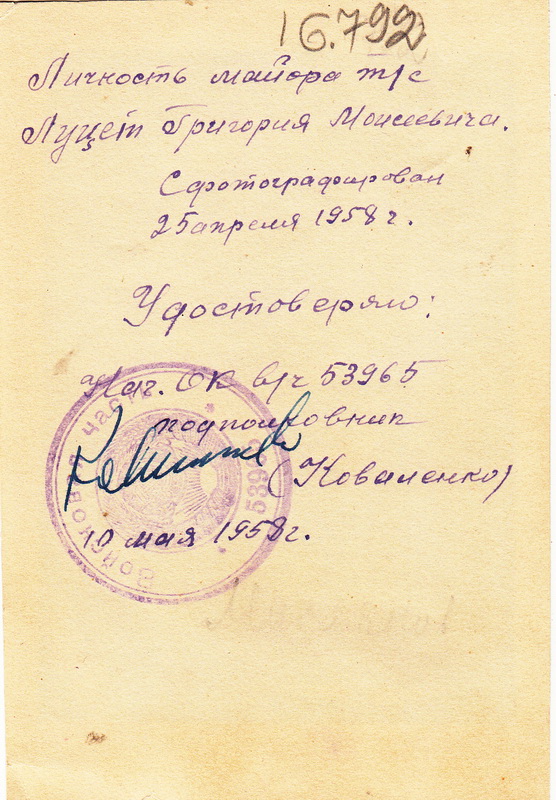 16.792
Личность майора т/с
Луцет Григория Моисеевича.
Сфотографирован
25 апреля 1958 г.
Удостоверяю:
Нач. ОК в/ч 53965
подполковник
(Коваленко)
10 мая 1958г.
Войсковая часть
53965